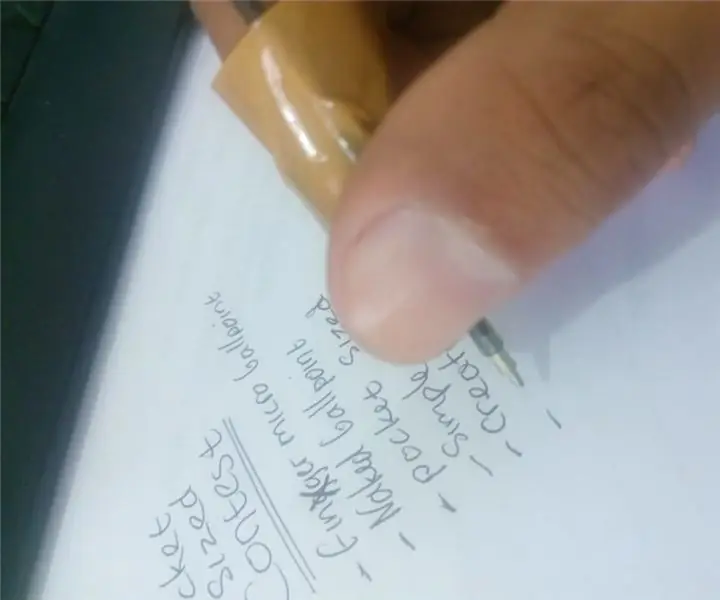 cket
sized
Contest
- Finger micro ballpoint
- Naked ballpoint
- pocket sized
- simple
- creat
-